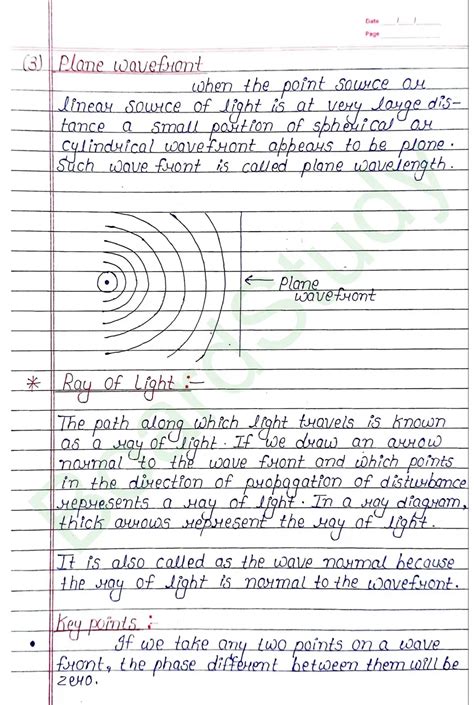 Date / /
Page
(3) Plane wavefront
when the point source or
linear source of light is at very large dis-
tance a small portion of spherical or
cylindrical wavefront appears to be plane.
Such wave front is called plane wavelength.
← Plane
wavefront
* Ray of Light :-
The path along which light travels is known
as a ray of light. If we draw an arrow
normal to the wave front and which points
in the direction of propagation of disturbance
represents a ray of light. In a ray diagram,
thick arrows represent the ray of light.
It is also called as the wave normal because
the ray of light is normal to the wavefront.
Key points :
• If we take any two points on a wave
front, the phase different between them will be
zero.
BoardStudy